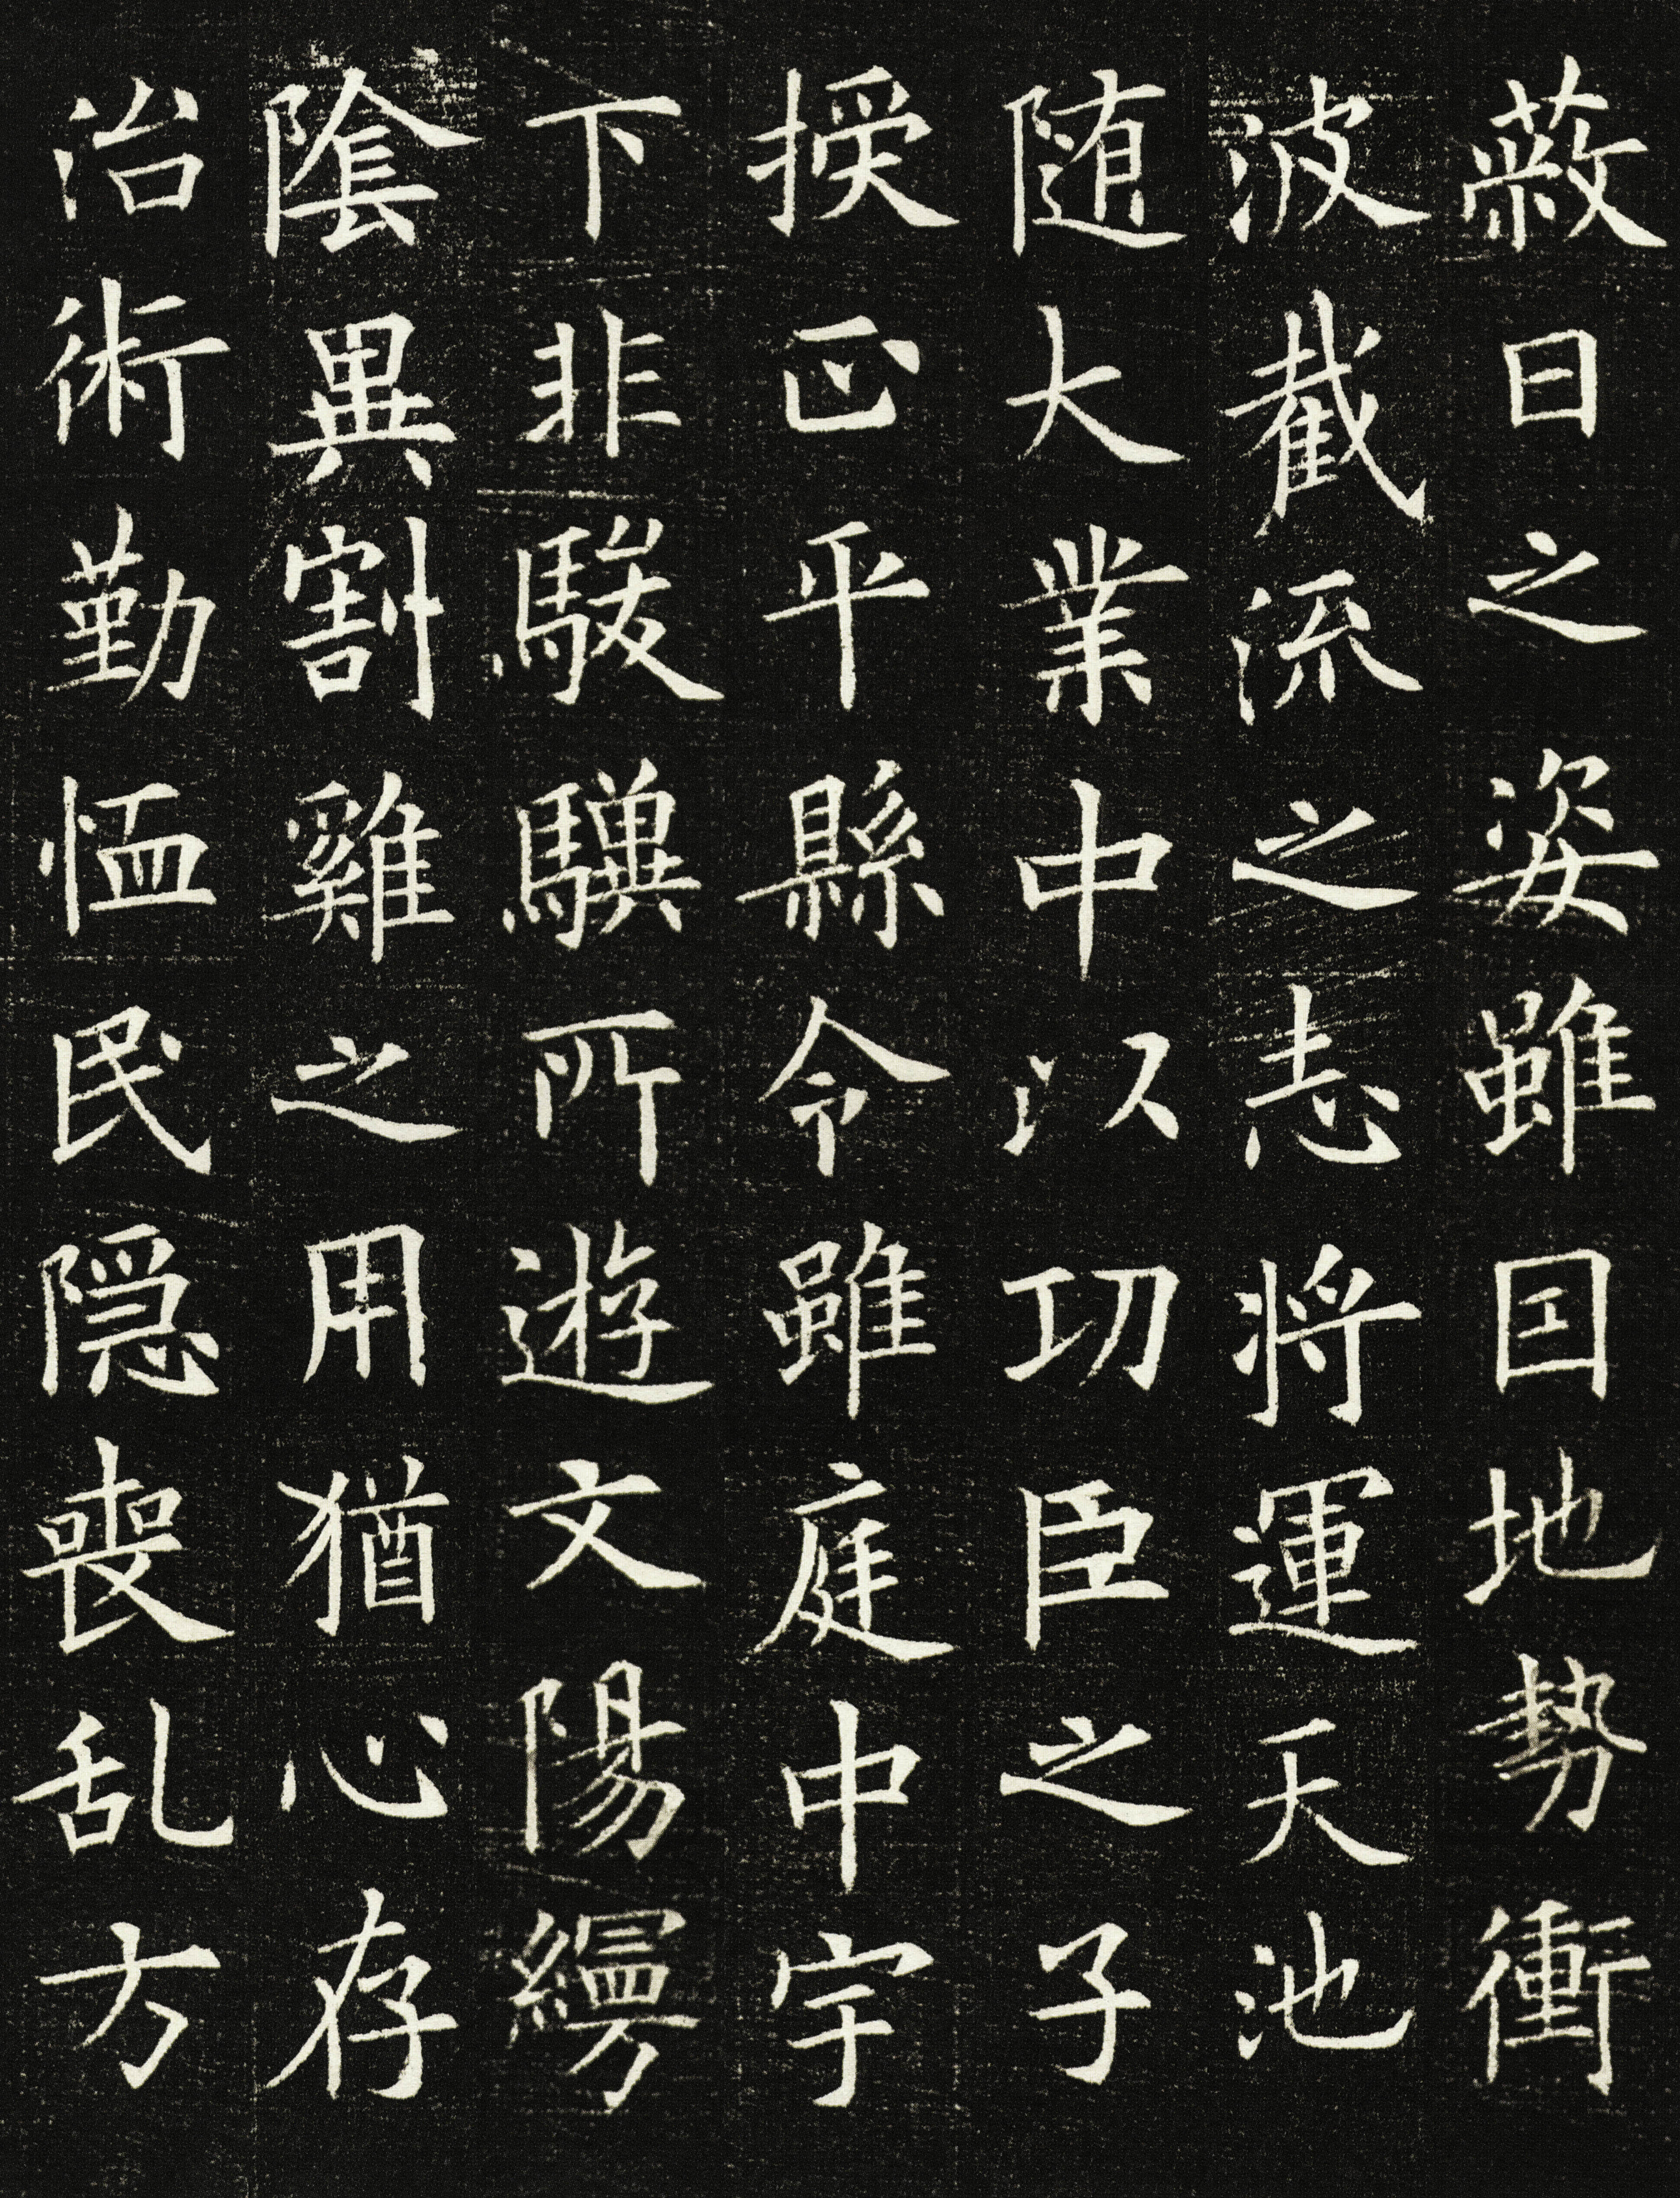 蔽日之姿雖囙地勢衝
波截流之志將運天池
随大業中以功臣之子
授正平縣令雖庭中宇
下非駿驥所遊文陽
陰異割雞之用猶心存
治術勤恤民隠喪乱方